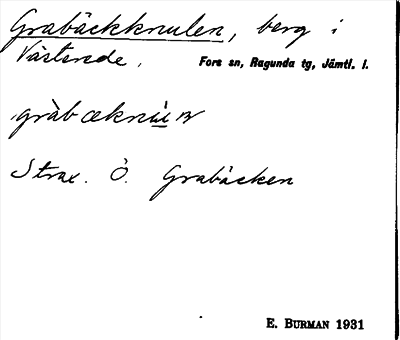 Grabäckknulen, berg i
Västerede.
Fors sn, Ragunda tg, Jämtl. l.
Strax Ö. Grabäcken
E. BURMAN 1931